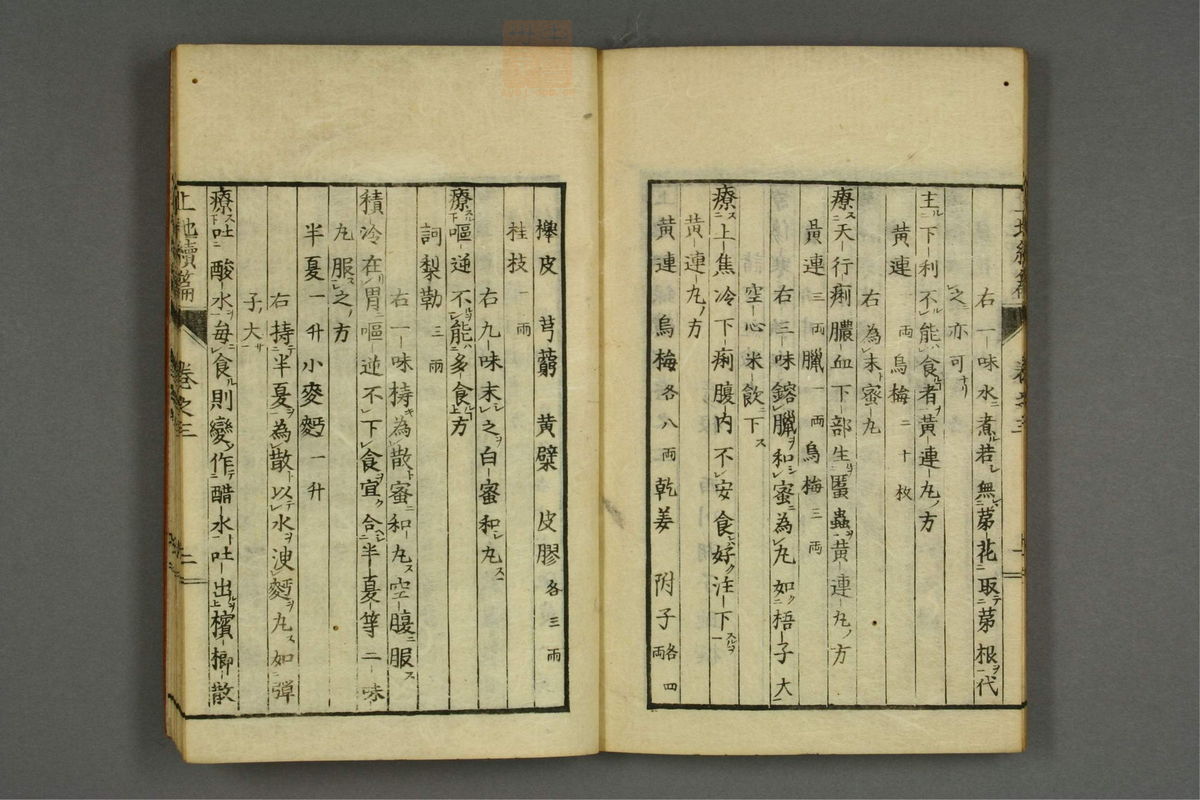 右一味水煮若無茀花取茀根代
之亦可
主下利不能食者黃連丸方
黃連 兩 烏梅二十枚
右為末蜜丸
療天行痢膿血下部生䘌蟲黃連丸方
黃連三兩 臘一兩 烏梅三兩
右三味鎔臘和蜜為丸如梧子大
空心米飲下
療上焦冷下痢腹内不安食好注下
黃連丸方
黃連 烏梅各八兩 乾姜 附子各四兩
櫸皮 芎藭 黃檗 皮膠各三兩
桂枝一兩
右九味末之白蜜和丸
療嘔逆不能多食方
訶梨勒三兩
右一味擣為散蜜和丸空腹服
積冷在胃嘔逆不下食宜合半夏等二味
丸服之方
半夏一升 小麥麪一升
右擣半夏為散以水溲麪丸如彈
子大
療吐酸水每食則變作醋水吐出檳榔散
卷之三 二